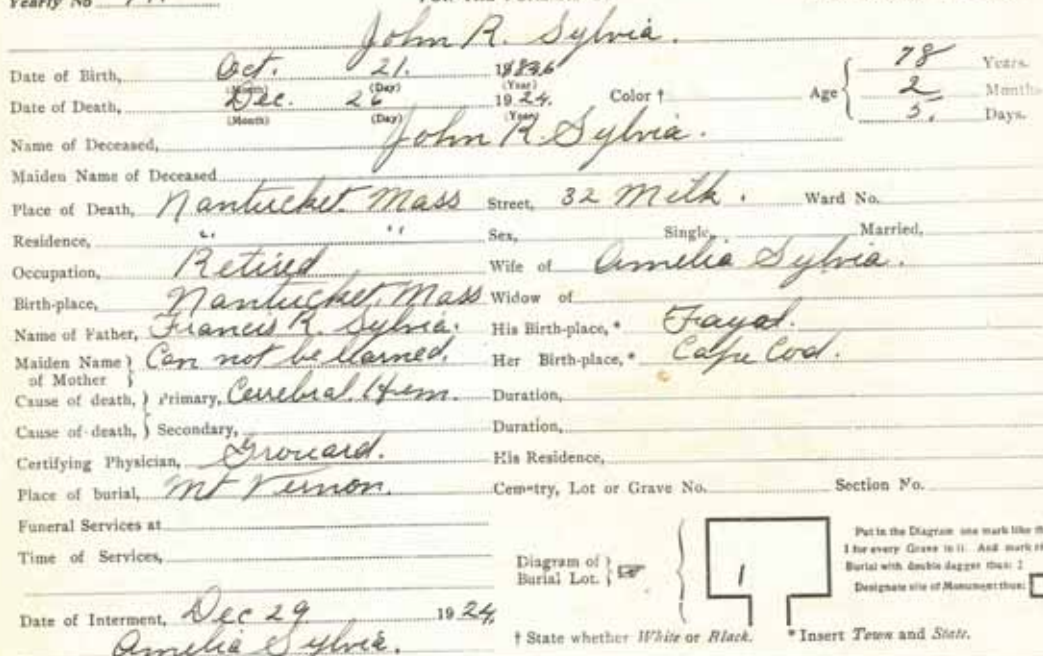 Yearly No
John R. Sylvia.
Date of Birth, Oct. 21. 1836 78 Years.
(Month) (Day) (Year)
Date of Death, Dec. 26 1924. Color † Age 2 Months
(Month) (Day) (Year) 5. Days.
Name of Deceased, John R. Sylvia.
Maiden Name of Deceased
Place of Death, Nantucket. Mass Street, 32 Milk. Ward No.
Residence, " " Sex, Single, Married,
Occupation, Retired Wife of Amelia Sylvia.
Birth-place, Nantucket, Mass Widow of
Name of Father, Francis R. Sylvia. His Birth-place, * Fayal.
Maiden Name } Can not be learned. Her Birth-place, * Cape Cod.
of Mother }
Cause of death, } Primary, Cerebral. Hem. Duration,
Cause of death, } Secondary, Duration,
Certifying Physician, Grouard. His Residence,
Place of burial, Mt Vernon. Cemetry, Lot or Grave No. Section No.
Funeral Services at
Time of Services,
Diagram of } Burial Lot. }
1
Put in the Diagram one mark like
1 for every Grave in it. And mark
Burial with double dagger thus: ‡
Designate site of Monument thus:
Date of Interment, Dec 29 1924,
† State whether White or Black. * Insert Town and State.
Amelia Sylvia.